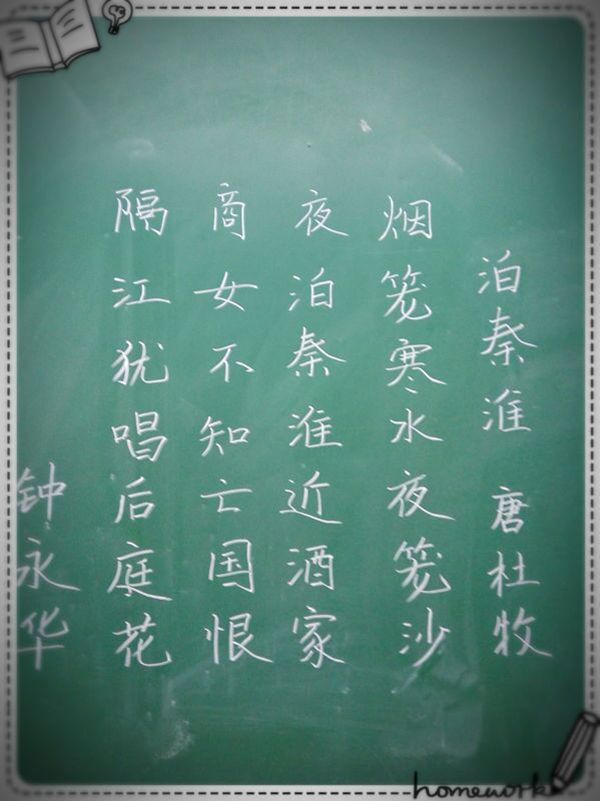 泊秦淮 唐杜牧
烟笼寒水夜笼沙
夜泊秦淮近酒家
商女不知亡国恨
隔江犹唱后庭花
钟永华
homework